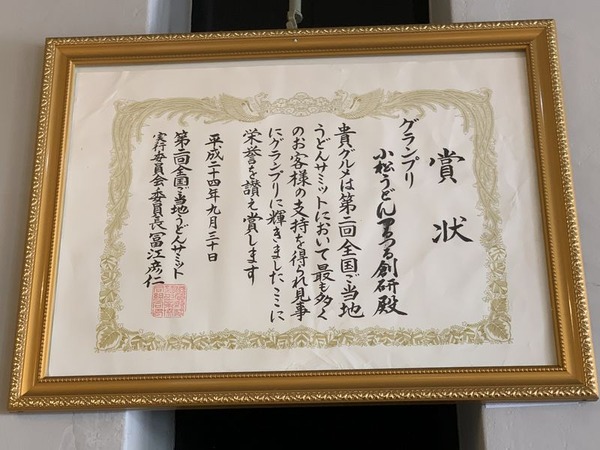 賞状
グランプリ
小松うどんつるつる創研殿
貴グルメは第二回全国ご当地
うどんサミットにおいて最も多く
のお客様の支持を得られ見事
にグランプリに輝きましたここに
栄誉を讃え賞します
平成二十四年九月三十日
第二回全国ご当地うどんサミット
実行委員会委員長冨江彦仁